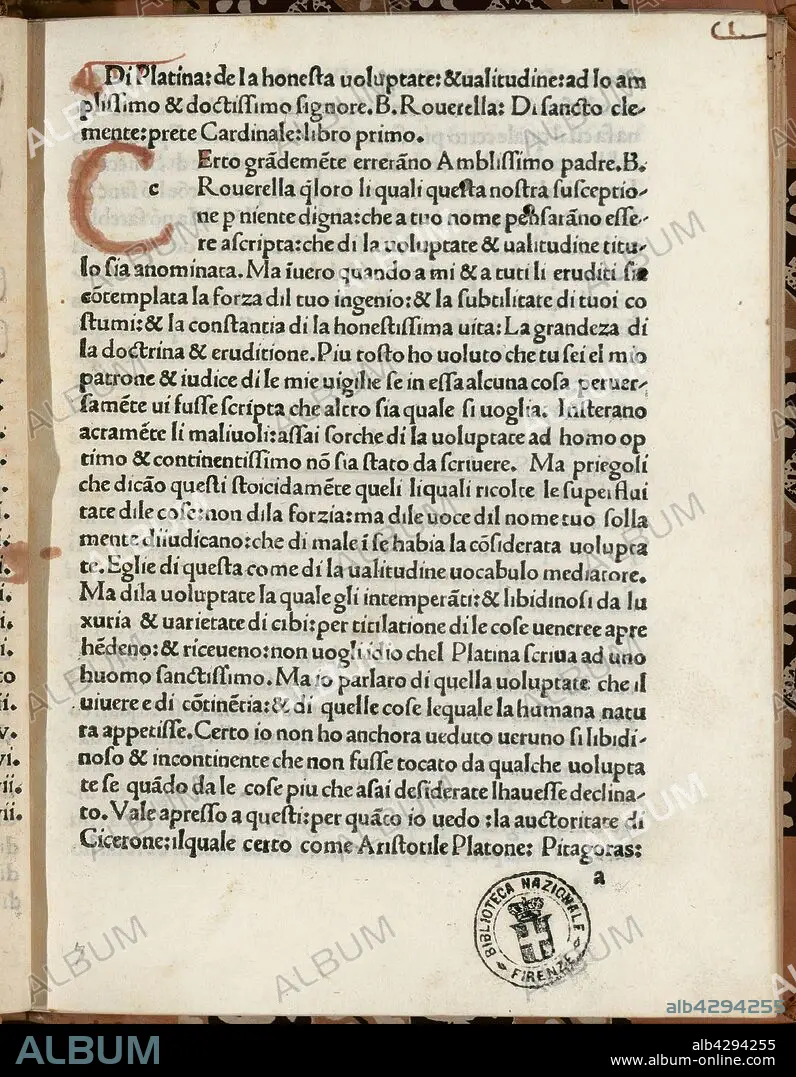 Di Platina: de la honesta uoluptate: & ualitudine: ad lo am
plissimo & doctissimo signore. B. Rouerella: Di sancto cle-
mente: prete Cardinale: libro primo.
C
c
Erto grãdemẽte erreráno Amblissimo padre. B.
Rouerella q̃loro li quali questa nostra susceptio-
ne p niente digna: che a tuo nome pensaráno esse-
re ascripta: che di la uoluptate & ualitudine titu-
lo sia anominata. Ma ĩuero quando a mi & a tuti li eruditi sie
cõtemplata la forza dil tuo ingenio: & la subtilitate di tuoi co
stumi: & la constantia di la honestissima uita: La grandeza di
la doctrina & eruditione. Piu tosto ho uoluto che tu sei el mio
patrone & iudice di le mie uigilie se in essa alcuna cosa peruer-
samẽte ui fusse scripta che altro sia quale si uoglia. Insterano
acramẽte li maliuoli: assai forche di la uoluptate ad homo op
timo & continentissimo nõ sia stato da scriuere. Ma priegoli
che dicão questi stoicidamẽte queli li quali ricolte le superflui
tate di le cose: non di la forzia: ma di le uoce dil nome tuo solla
mente diiudicano: che di male ĩ se habia la cõsiderata uolupta
te. Eglie di questa come di la ualitudine uocabulo mediatore.
Ma di la uoluptate la quale gli intemperãti: & libidinosi da lu
xuria & uarietate di cibi: per titilatione di le cose ueneree apre
hẽdeno: & riceueno: non uogli idio chel Platina scriua ad uno
huomo sanctissimo. Ma io parlaro di quella uoluptate che il
uiuere e di cõtinẽtia: & di quelle cose lequale la humana natu
ra appetisse. Certo io non ho anchora ueduto ueruno si libidi-
noso & incontinente che non fusse tocato da qualche uolupta
te se quãdo da le cose piu che asai desiderate lhauesse declina-
to. Vale apresso a questi: per quãto io uedo: la auctoritate di
Cicerone: ilquale certo come Aristotile Platone: Pitagoras:
a
BIBLIOTECA NAZIONALE
FIRENZE
ALBUM
alb4294255
ALBUM
alb4294255
www.album-online.com